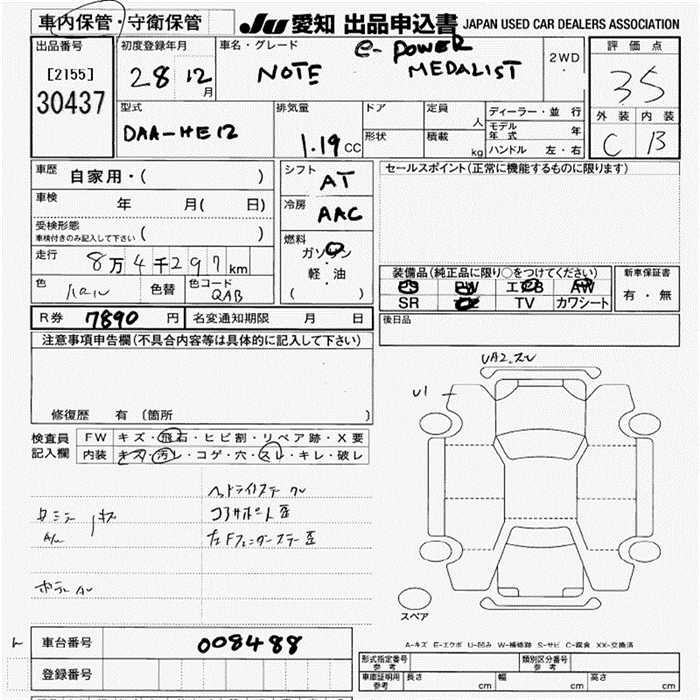 車内保管・守衛保管
JU 愛知 出品申込書 JAPAN USED CAR DEALERS ASSOCIATION
出品番号
[2155]
30437
初度登録年月
28 12月
車名・グレード
e-POWER
NOTE MEDALIST
2WD
評価点
35
外装 内装
C B
型式
DAA-HE12
排気量
1.19 CC
ドア
形状
定員
人
積載
kg
ディーラー・並行
モデル年式 年
ハンドル 左・右
車歴
自家用・( )
車検 年 月( 日)
受検形態
車検付きのみ記入して下さい ( )
走行 8万4千297km
色 パール 色替 色コード QAB
シフト
AT
冷房
AAC
燃料
ガソリン
軽・油
( )
セールスポイント(正常に機能するものに限ります)
装備品(純正品に限り○をつけてください)
PS PW エアB AW
SR TV カワシート
新車保証書
有・無
R券 7890 円 名変通知期限 月 日
後日品
注意事項申告欄(不具合内容等は具体的に記入して下さい)
修復歴 有(箇所 )
検査員記入欄
FW キズ・飛石・ヒビ割・リペア跡・X要
内装 キズ・汚レ・コゲ・穴・スレ・キレ・破レ
UA2.スレ
U1
スペア
A-キズ E-エクボ U-凹み W-補修跡 S-サビ C-腐食 XX-交換済
車台番号 008488
登録番号
形式指定番号 参考
類別区分番号 参考
車庫証明用 参考
長さ cm 幅 cm 高さ cm